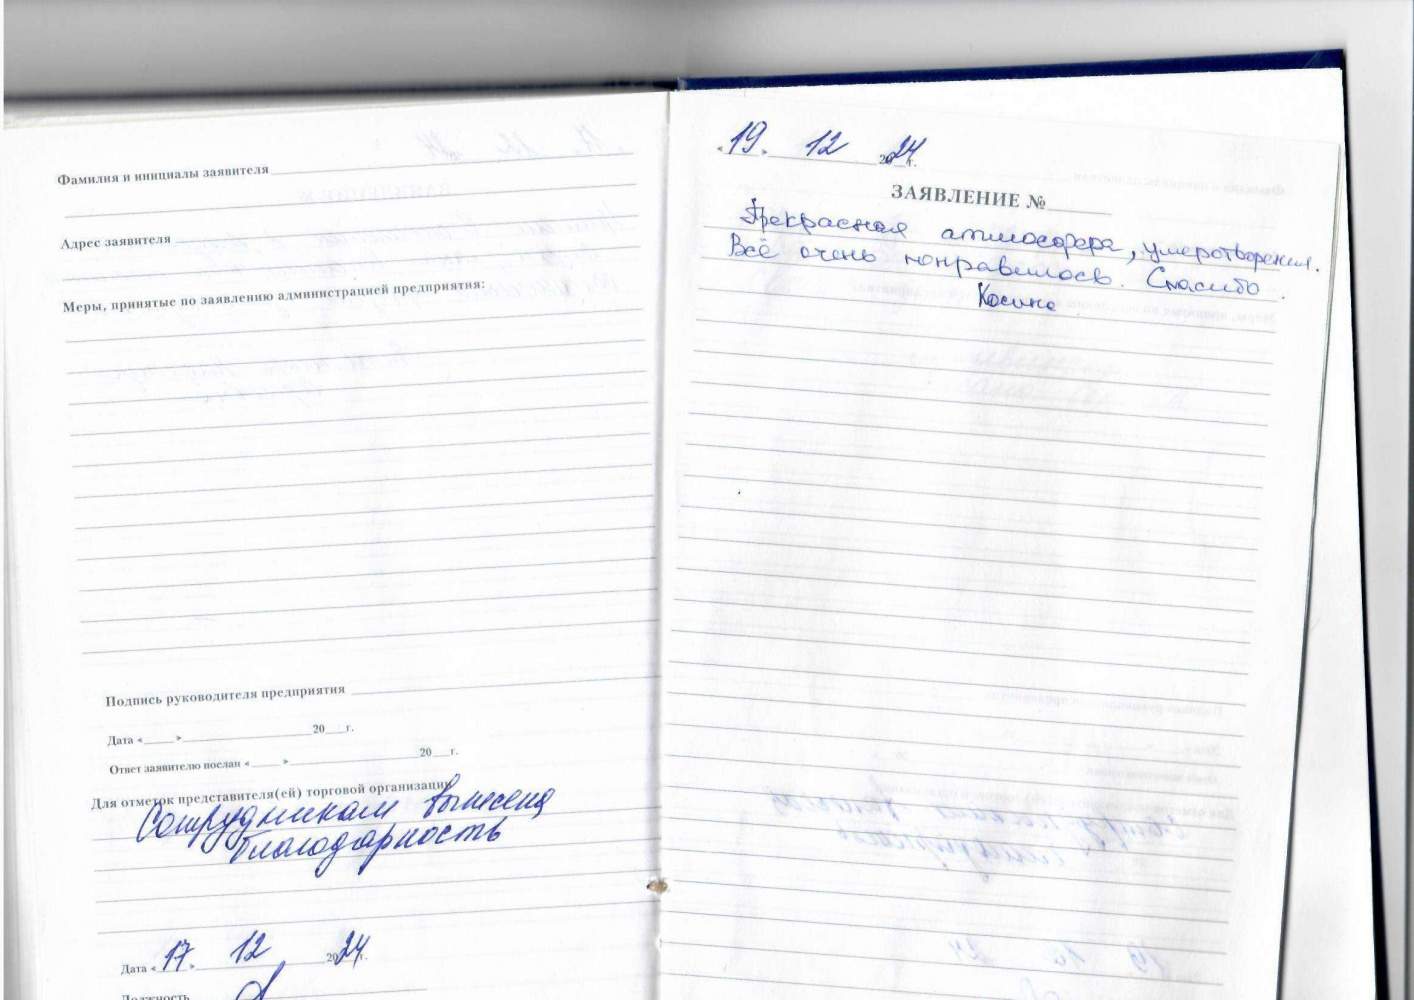 Фамилия и инициалы заявителя
Адрес заявителя
Меры, принятые по заявлению администрацией предприятия:
Подпись руководителя предприятия
Дата «____» ____ 20__г.
Ответ заявителю послан «____» ____ 20__г.
Для отметок представителя(ей) торговой организации
Сотрудникам вынесена
благодарность
Дата «17» 12 2024г.
Должность
«19» 12 2024г.
ЗАЯВЛЕНИЕ №
Прекрасная атмосфера, умеротворения.
Всё очень понравилось. Спасибо.